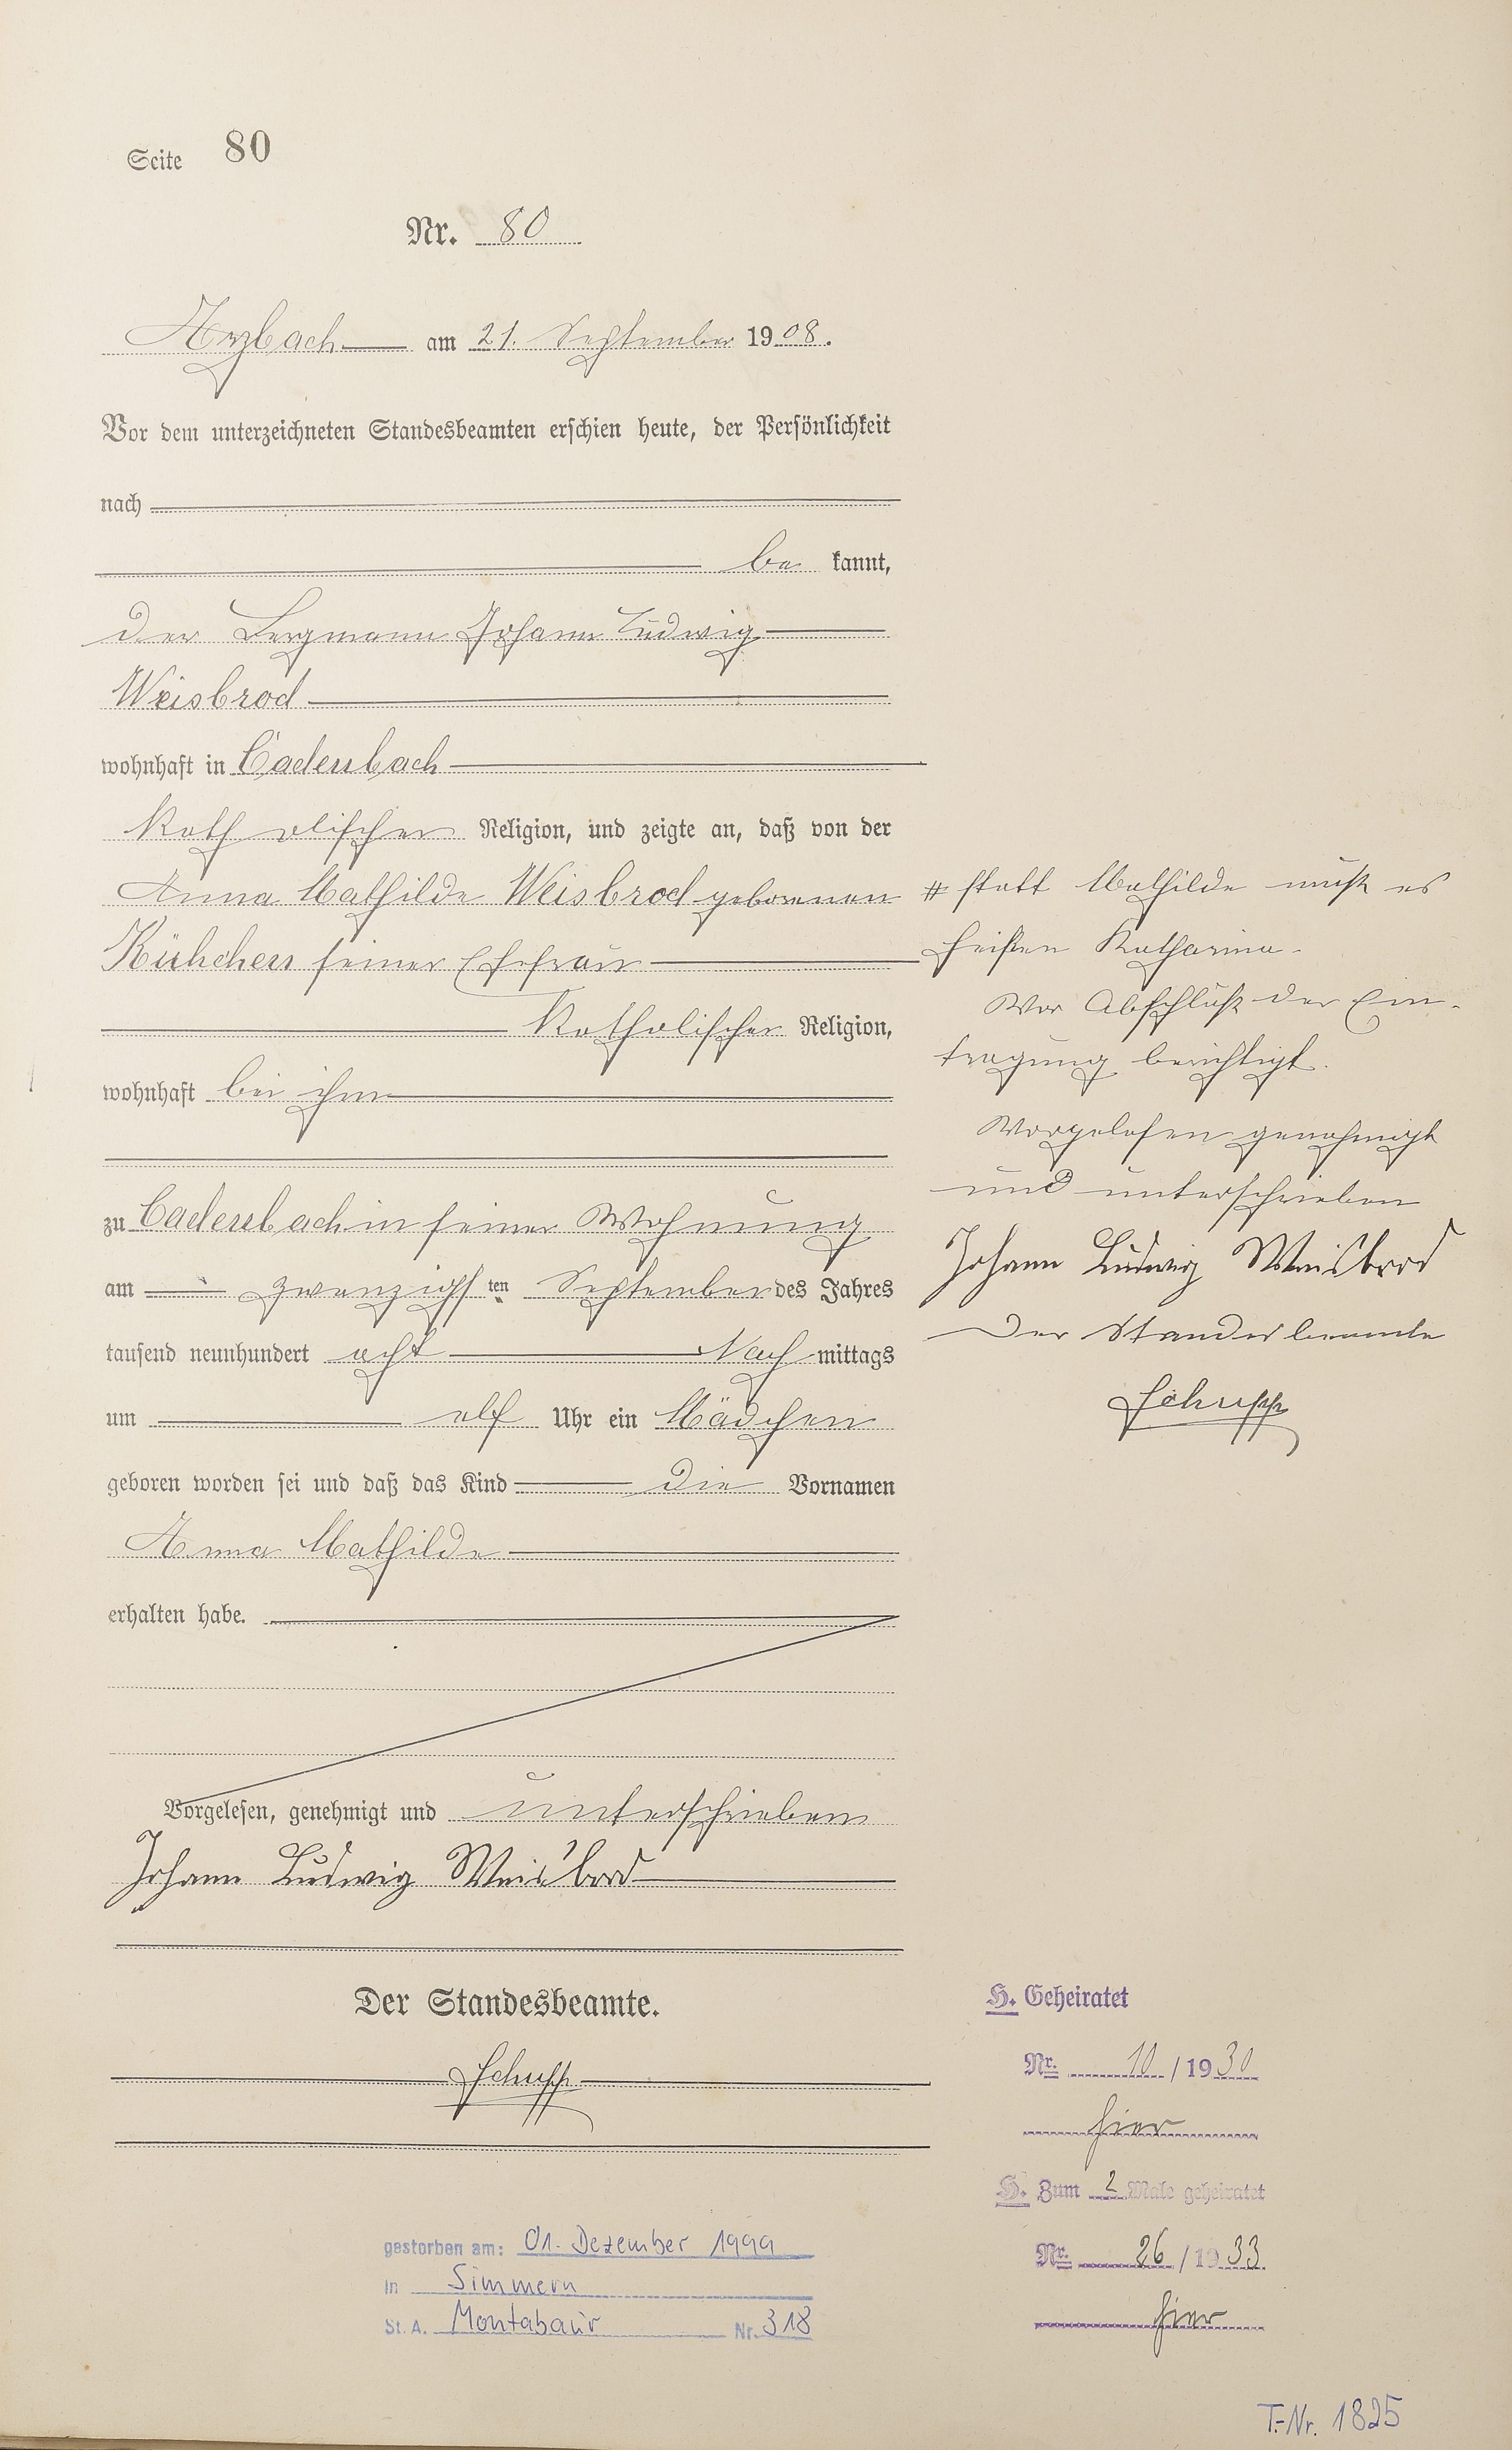 Seite 80
Nr. 80
Arzbach am 21. September 1908.
Vor dem unterzeichneten Standesbeamten erschien heute, der Persönlichkeit
nach
be kannt,
der Bergmann Johann Ludwig
Weisbrod
wohnhaft in Cadenbach
Katholischer Religion, und zeigte an, daß von der
Anna Mathilde Weisbrod geborenen
Kühchen seiner Ehefrau
Katholischer Religion,
wohnhaft bei ihm
zu Cadenbach in seiner Wohnung
am zwanzigsten September des Jahres
tausend neunhundert acht Nachmittags
um elf Uhr ein Mädchen
geboren worden sei und daß das Kind die Vornamen
Anna Mathilde
erhalten habe.
Vorgelesen, genehmigt und unterschrieben
Johann Ludwig Weisbrod
Der Standesbeamte.
Schupp
# statt Mathilde muß es
heißen Katharina.
Vor Abschluß der Ein-
tragung berichtigt.
Vorgelesen genehmigt
und unterschrieben
Johann Ludwig Weisbrod
Der Standesbeamte
Schupp
H. Geheiratet
Nr. 10/1930
hier
H. Zum 2 Male geheiratet
Nr. 26/1933
hier
gestorben am: 01. Dezember 1999
in Simmern
St. A. Montabaur Nr. 318
T.-Nr. 1825